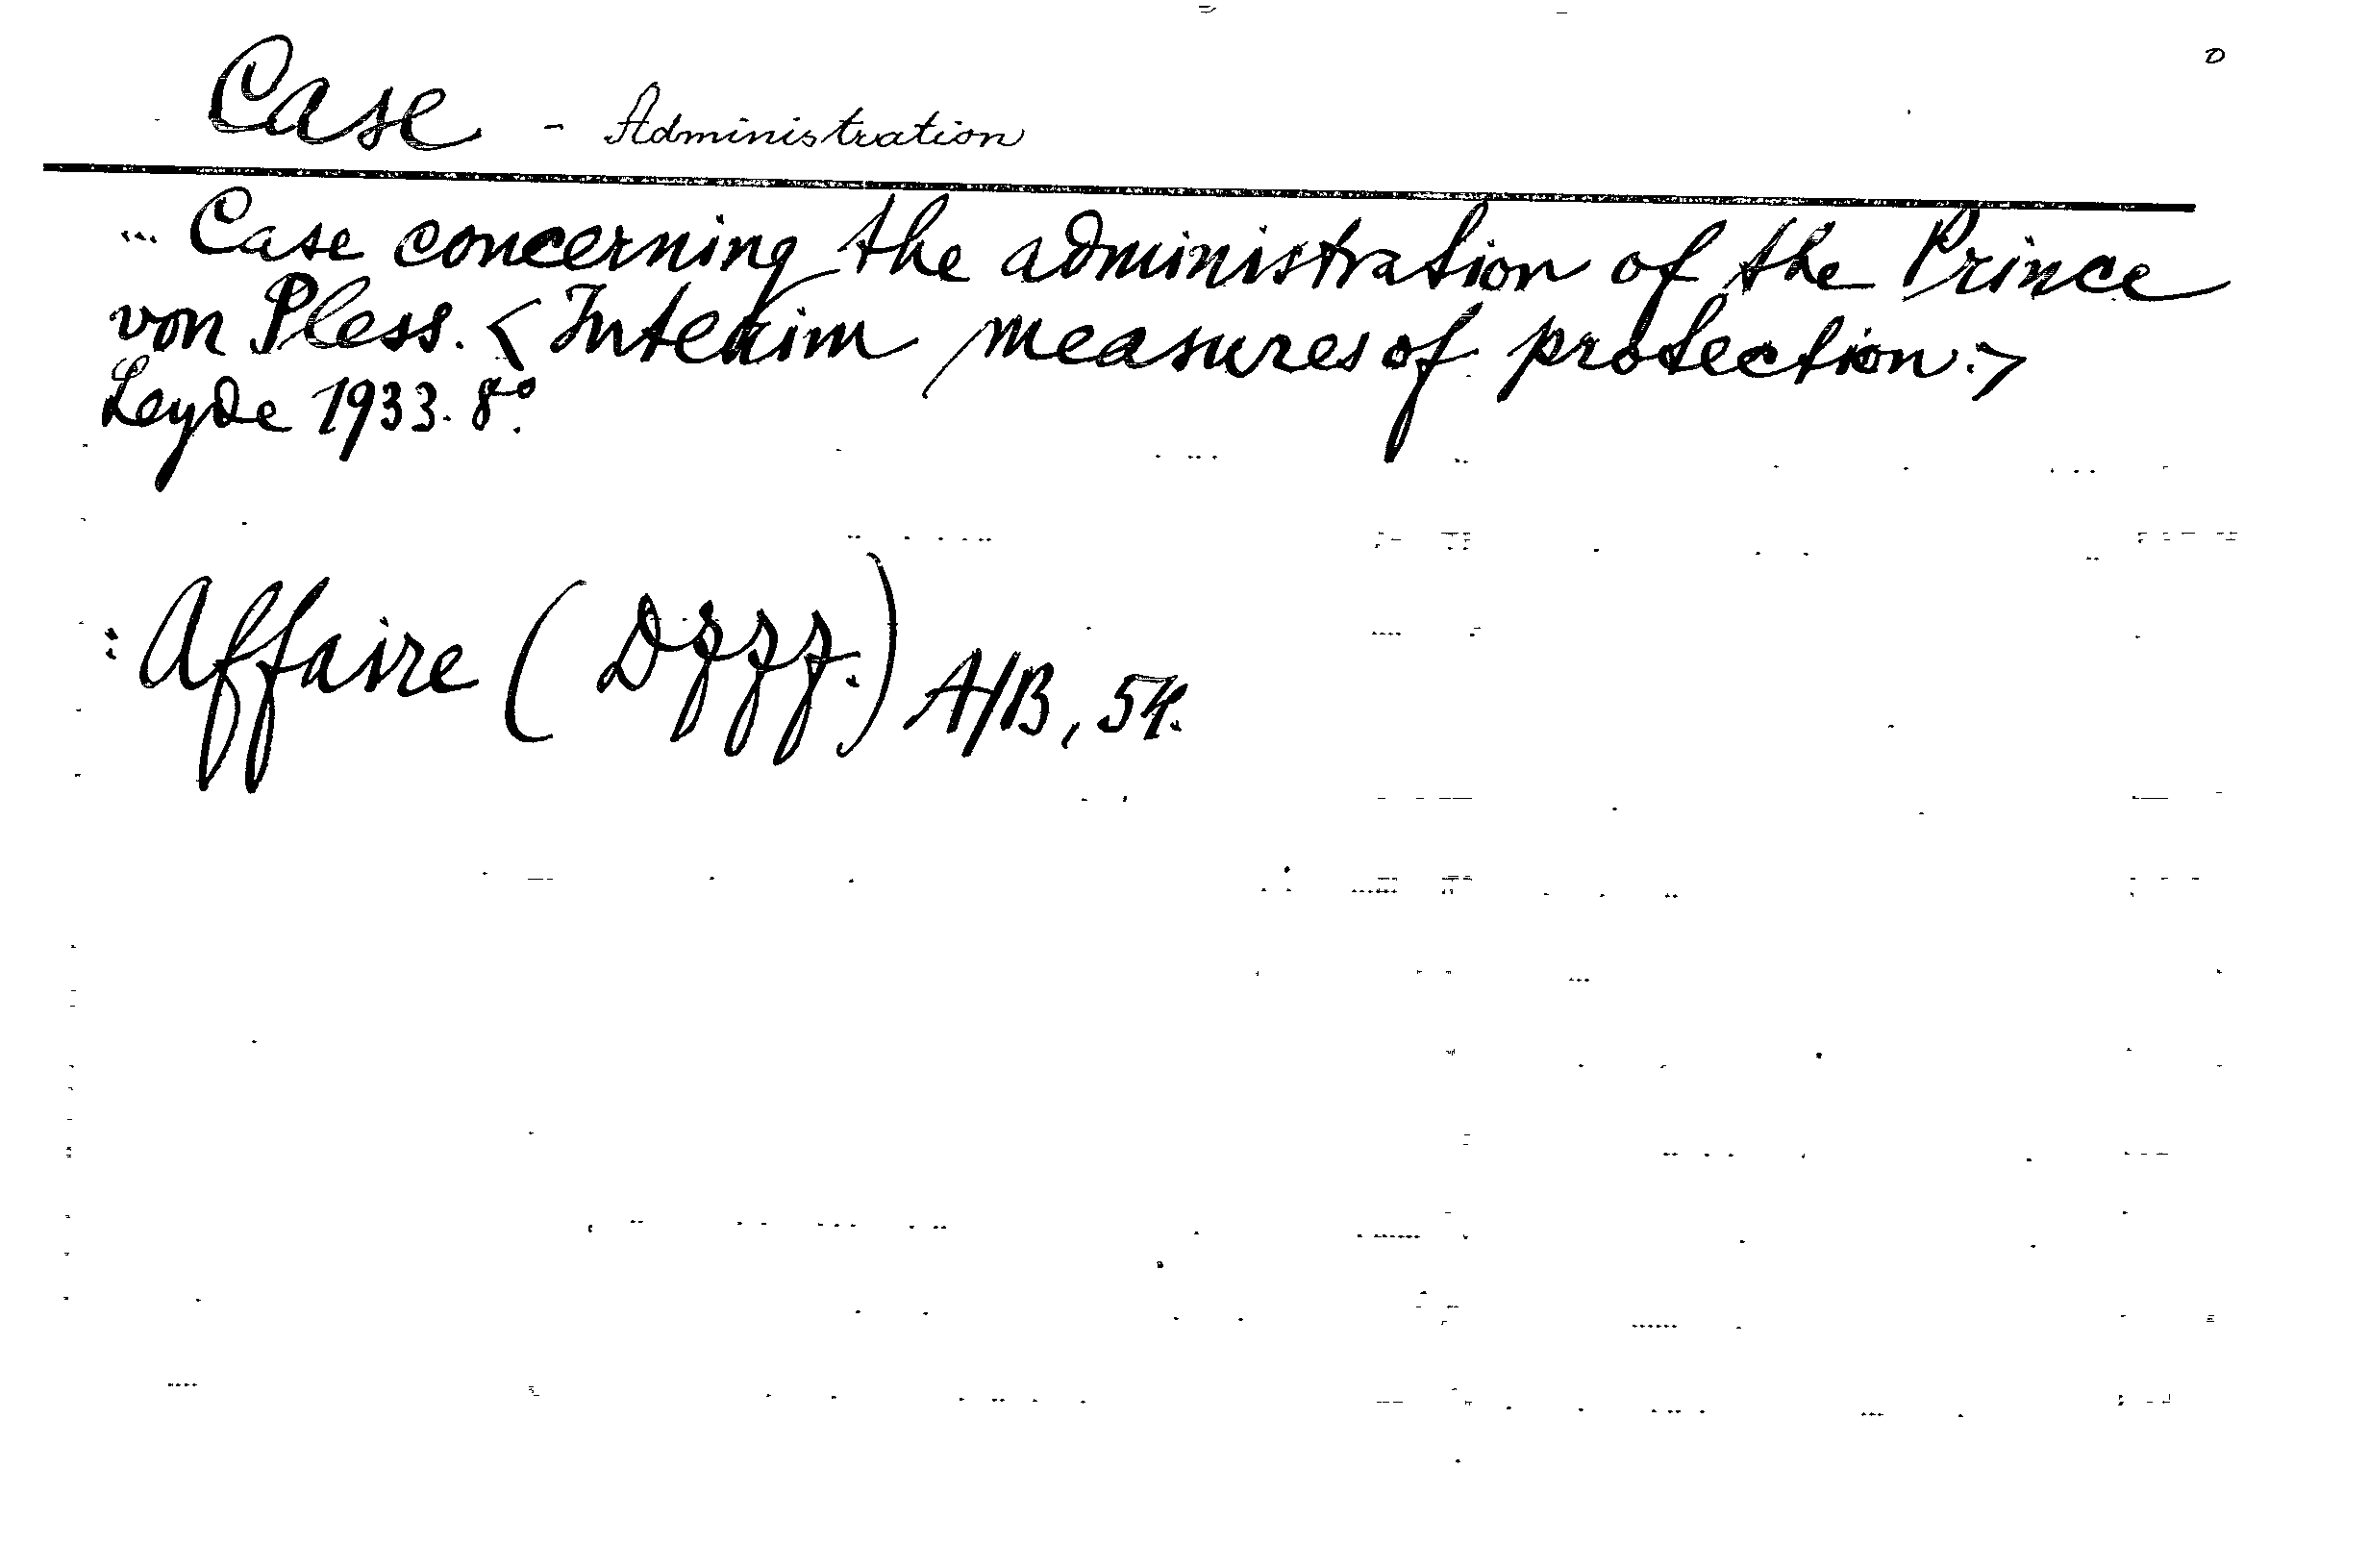 Case - Administration
... Case concerning the administration of the Prince
von Pless. < Interim measures of protection. >
Leyde 1933. 8°.
: Affaire ( ) A/B, 54.